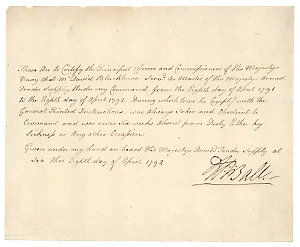 These Are to Certify the Principal Officers and Commissioners of His Majestys
Navy that Mr David Blackburn Served as Master of His Majestys Armed
Tender Supply Under my Command from the Eighth day of April 1791
to the Eighth day of April 1792. During which time he Complyd with the
General Printed Instructions. was Always Sober and Obedient to
Command and was never Six weeks Absent from Duty Either by
Sickness or Any other Occasion
Given under my hand on board His Majestys Armed Tender Supply at
Sea this Eighth day of April 1792
Ball